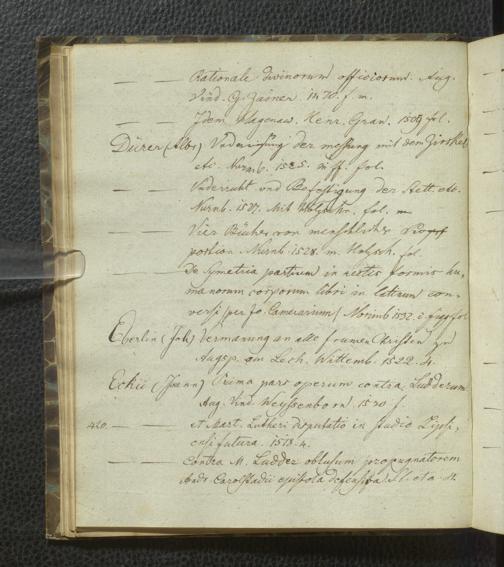 — — Rationale divinorum officiorum. Aug.
Vind. G. Zainer 1470. f. m.
— — Idem. Hagenaw. Henr. Gran. 1509 fol.
Dürer (Albr) Underweisung der messung mit dem Zirkel
etc. Nurnb. 1525. fol.
— — Underricht und Befestigung der Stett etc.
Nurnb. 1527. Mit Holzschn. fol. m
— — Vier Bücher von menschlicher Propor
portion. Nurnb. 1528. m. Holzsch. fol.
— — De Symetria partium in rectis formis hu,
manorum corporum libri in latinum con,
versi (per Jo. Camerarium) Norimb 1532. fol
Eberlin (Joh) Vermanung an alle frumen Christen zu
Augsp. am Lech. Wittemb. 1522. 4.
Eckii (Joann) Prima pars operum contra Ludderum
Aug. Vind. Weyssenborn 1530 f.
420. — — et Mart. Lutheri disputatio in studio Lips,
ensi futura. 1518. 4.
— — Contra M. Ludder obtusum propugnatorem
Andr. Carolstadii epistola defensiva S. l. et a. 4.